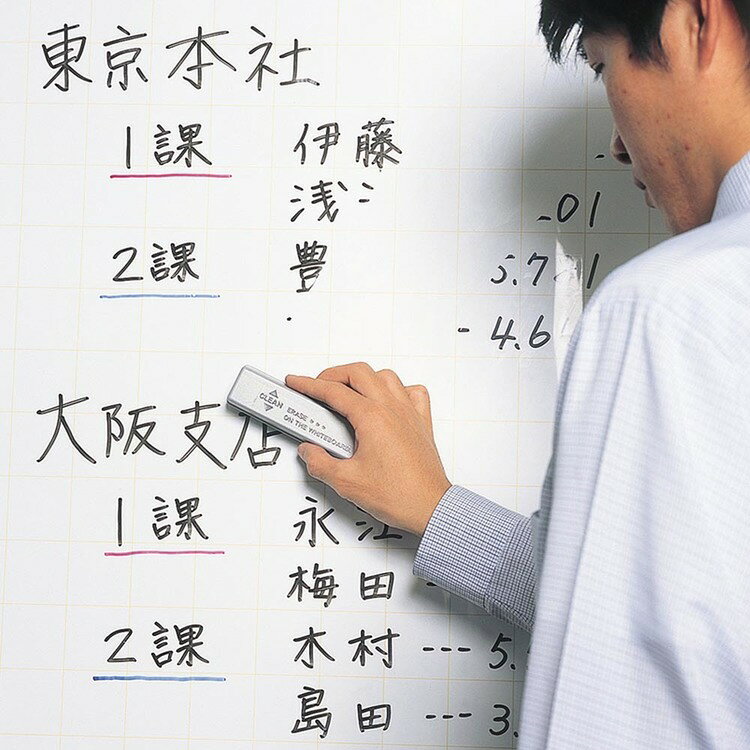 東京本社
1課 伊藤
浅 -01
2課 豊 5.7 1
- 4.6
大阪支店
CLEAN ERASE >>>
ON THE WHITEBOARD
1課 永江
梅田
2課 木村 --- 5.
島田 --- 3.